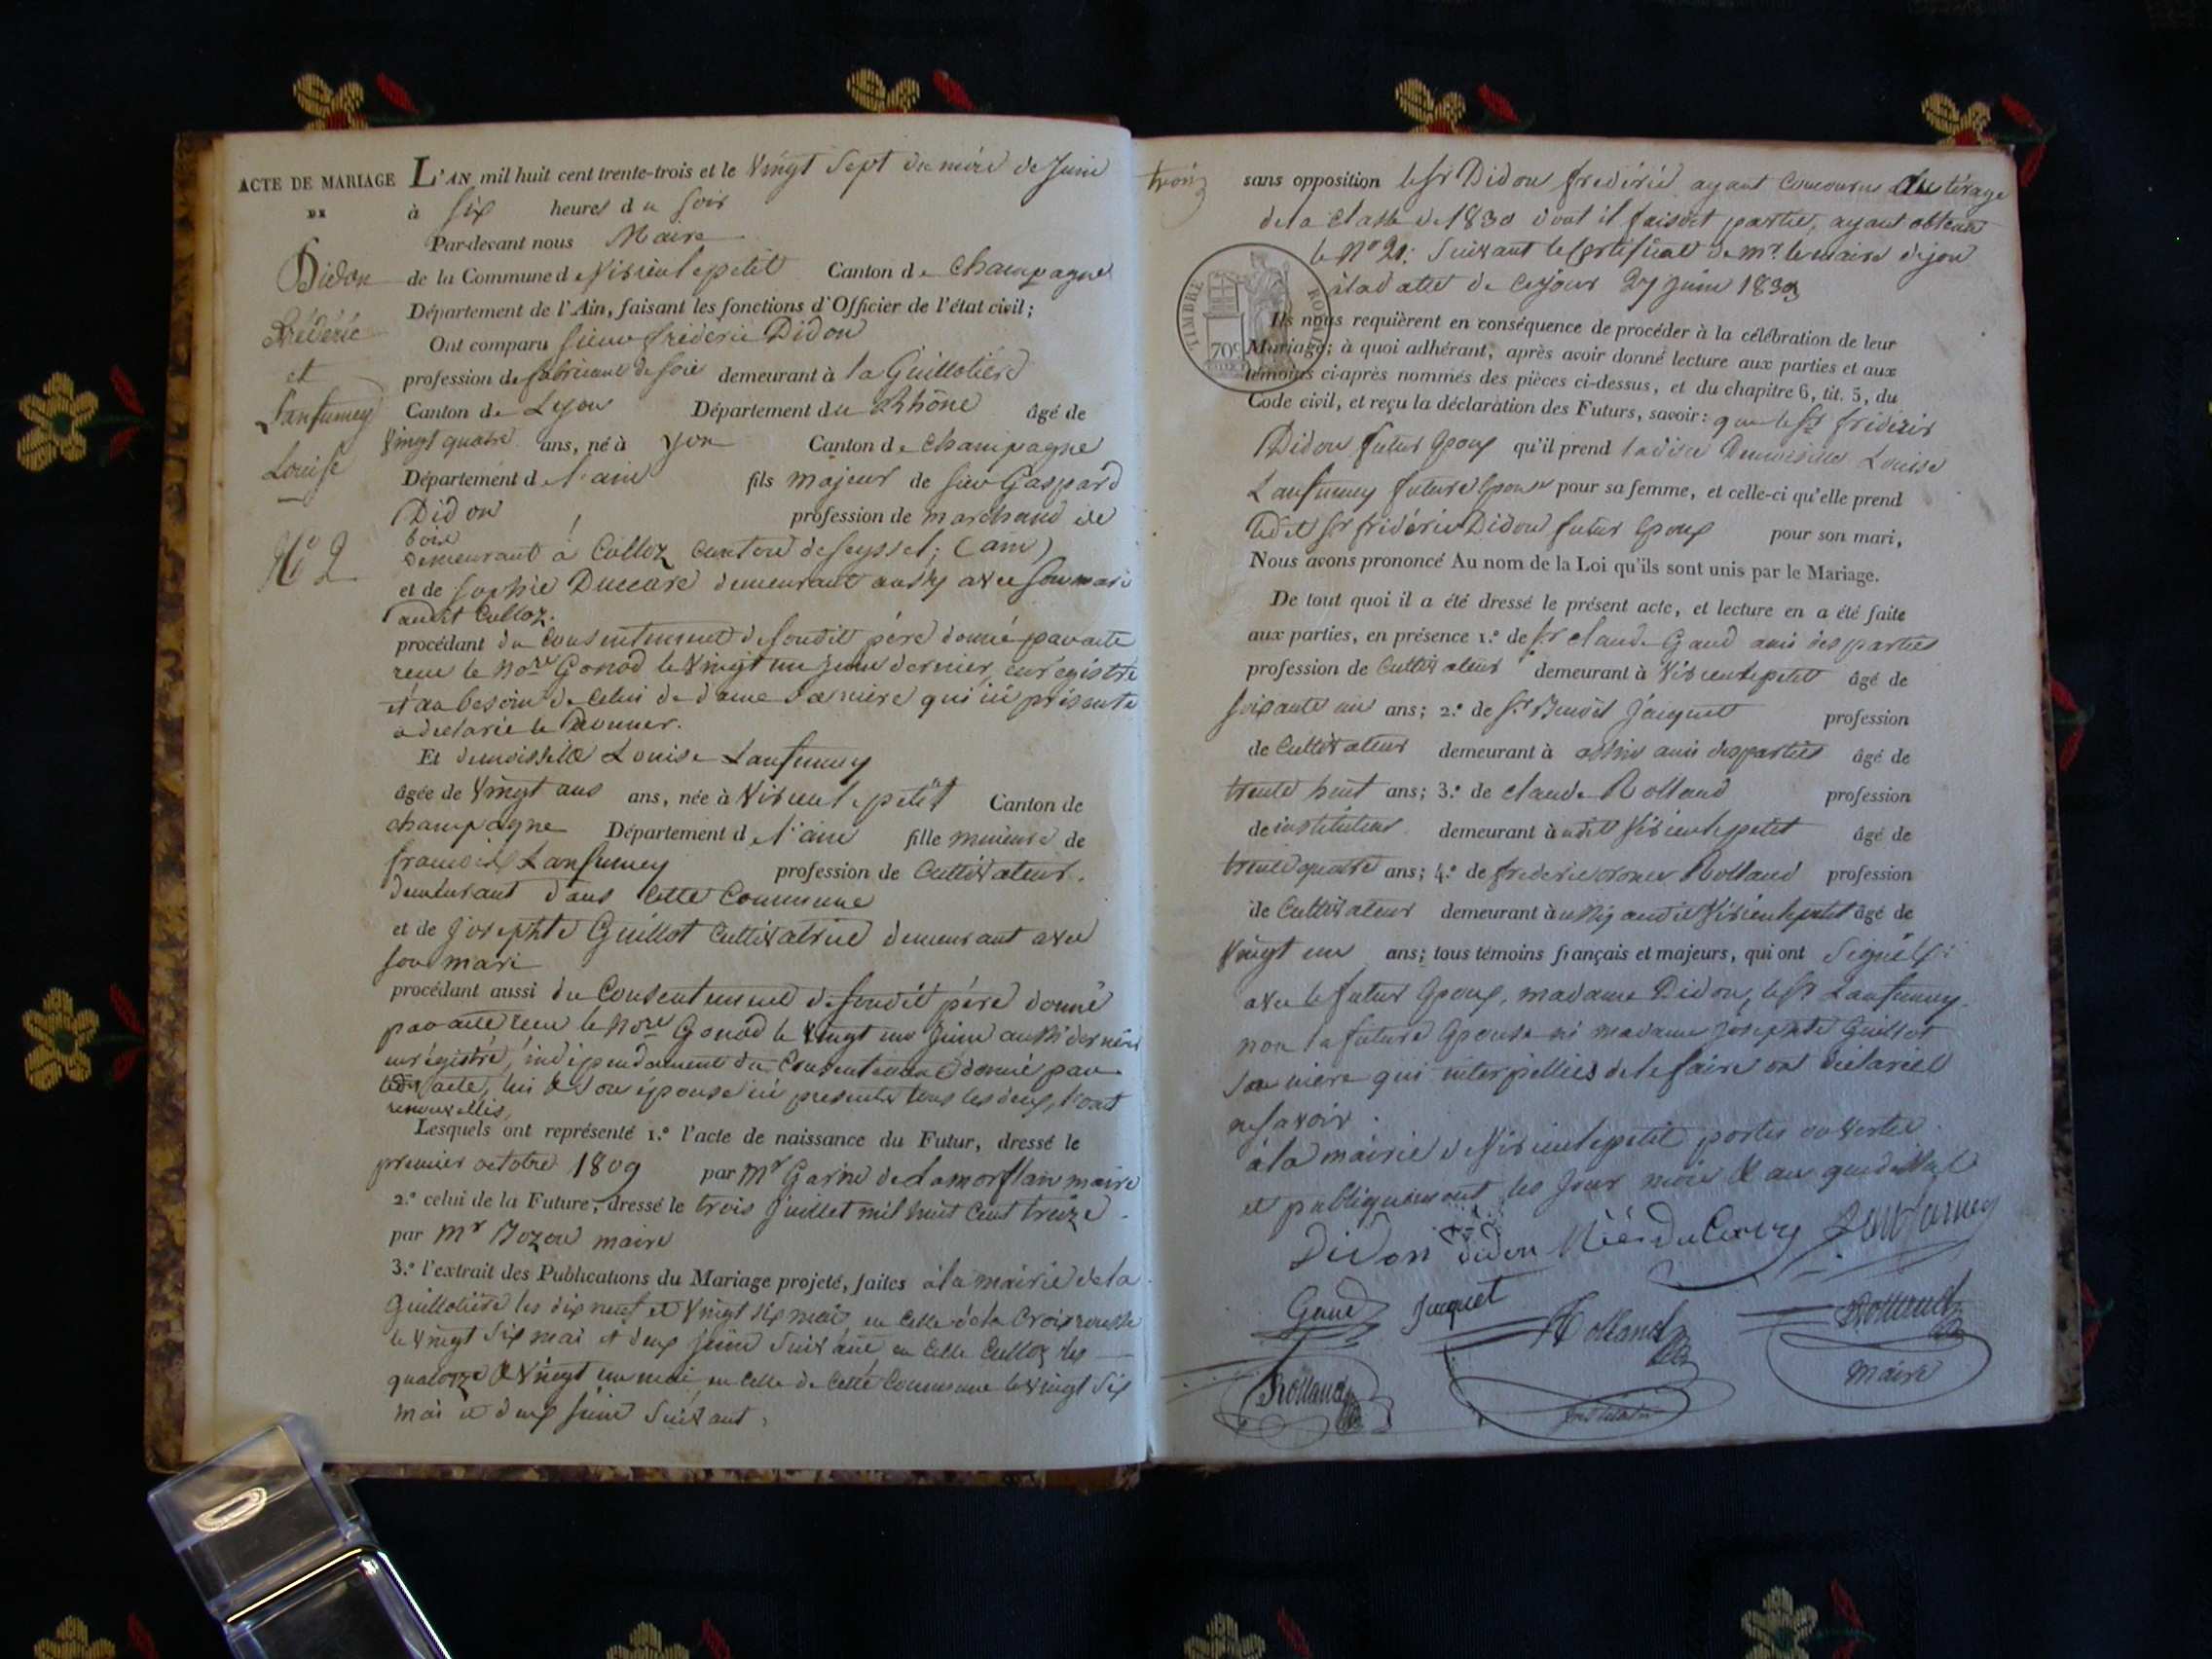 ACTE DE MARIAGE L'AN mil huit cent trente-trois et le vingt sept du mois de Juin
DE à six heures du soir
Par-devant nous Maire
Didon de la Commune de Virieu le petit Canton de champagne
Département de l'Ain, faisant les fonctions d'Officier de l'état civil;
Frédéric Ont comparu sieur frédéric Didon
et profession de fabricant de soie demeurant à la Guillotière
Lanfumey Canton de Lyon Département du Rhône âgé de
vingt quatre ans, né à yon Canton de champagne
Louise Département de l'ain fils majeur de sieur Gaspard
Didon profession de marchand de
bois
N° 2 demeurant à Culloz canton de seyssel; (ain)
et de sophie Duccare demeurant aussy avec son mari
audit Culloz.
procédant du Consentement de soudit père donné par acte
reçu le no.re Gonod le vingt un juin dernier, enrégistré
et au besoin de celui de dame sa mère qui ici présente
a déclaré le donner.
Et demoiselle Louise Lanfumey
âgée de vingt ans ans, née à Virieu le petit Canton de
champagne Département de l'ain fille mineure de
françois Lanfumey profession de Cultivateur.
demeurant dans cette Commune
et de Josephte Guillot Cultivatrice demeurant avec
son mari
procédant aussi du Consentement de soudit père donné
par acte reçu le no.re Gonod le vingt un juin aussi dernier
enrégistré, indépendament du Consentement donné par
acte, lui & son épouse ici presents tous les deux, l'ont
renouvellés,
Lesquels ont représenté 1.° l'acte de naissance du Futur, dressé le
premier octobre 1809 par M.r Garin de Lamorflan maire
2.° celui de la Future, dressé le trois Juillet mil huit cent treize
par M.r Bozon maire
3.° l'extrait des Publications du Mariage projeté, faites à la mairie de la
Guillotière les dix neuf et vingt six mai en celle de la Croix rousse
le vingt six mai et deux juin suivant en celle Culloz les
quatorze & vingt un mai, en celle de cette Commune le vingt six
mai et deux juin suivant,
sans opposition le s.r Didon frédéric ayant concouru au tirage
de la classe de 1830 dont il faisoit partie, ayant obtenu
le N° 21: suivant le certificat de m.r le maire d'yon
à la date de ce jour 27 juin 1833
TIMBRE ROYAL
70c
Ils nous requièrent en conséquence de procéder à la célébration de leur
Mariage; à quoi adhérant, après avoir donné lecture aux parties et aux
témoins ci-après nommés des pièces ci-dessus, et du chapitre 6, tit. 5, du
Code civil, et reçu la déclaration des Futurs, savoir: que le s.r fréderic
Didon futur époux qu'il prend ladite Demoiselle Louise
Lanfumey future épouse pour sa femme, et celle-ci qu'elle prend
ledit s.r frédéric Didon futur époux pour son mari,
Nous avons prononcé Au nom de la Loi qu'ils sont unis par le Mariage.
De tout quoi il a été dressé le présent acte, et lecture en a été faite
aux parties, en présence 1.° de s.r claude Gaud ami des parties
profession de Cultivateur demeurant à Virieu le petit âgé de
soixante un ans; 2.° de s.r Benoit Jacquet profession
de Cultivateur demeurant à ami des parties âgé de
trente huit ans; 3.° de claude Rolland profession
de instituteur demeurant à udit Virieu le petit âgé de
trente quatre ans; 4.° de frederic Rolland profession
de Cultivateur demeurant à ussy audit Virieu le petit âgé de
vingt un ans; tous témoins français et majeurs, qui ont signés
avec le futur époux, madame Didon, le s.r Lanfumey
non la future épouse ni madame Josephte Guillot
sa mère qui interpellées de le faire ont déclarée
ne savoir.
à la mairie de Virieu le petit portes ouvertes
et publiquement les jour mois & an que dessus
Didon didon née Lanfumey
Gaud Jacquet Rolland Rolland
Rolland instituteur Maire